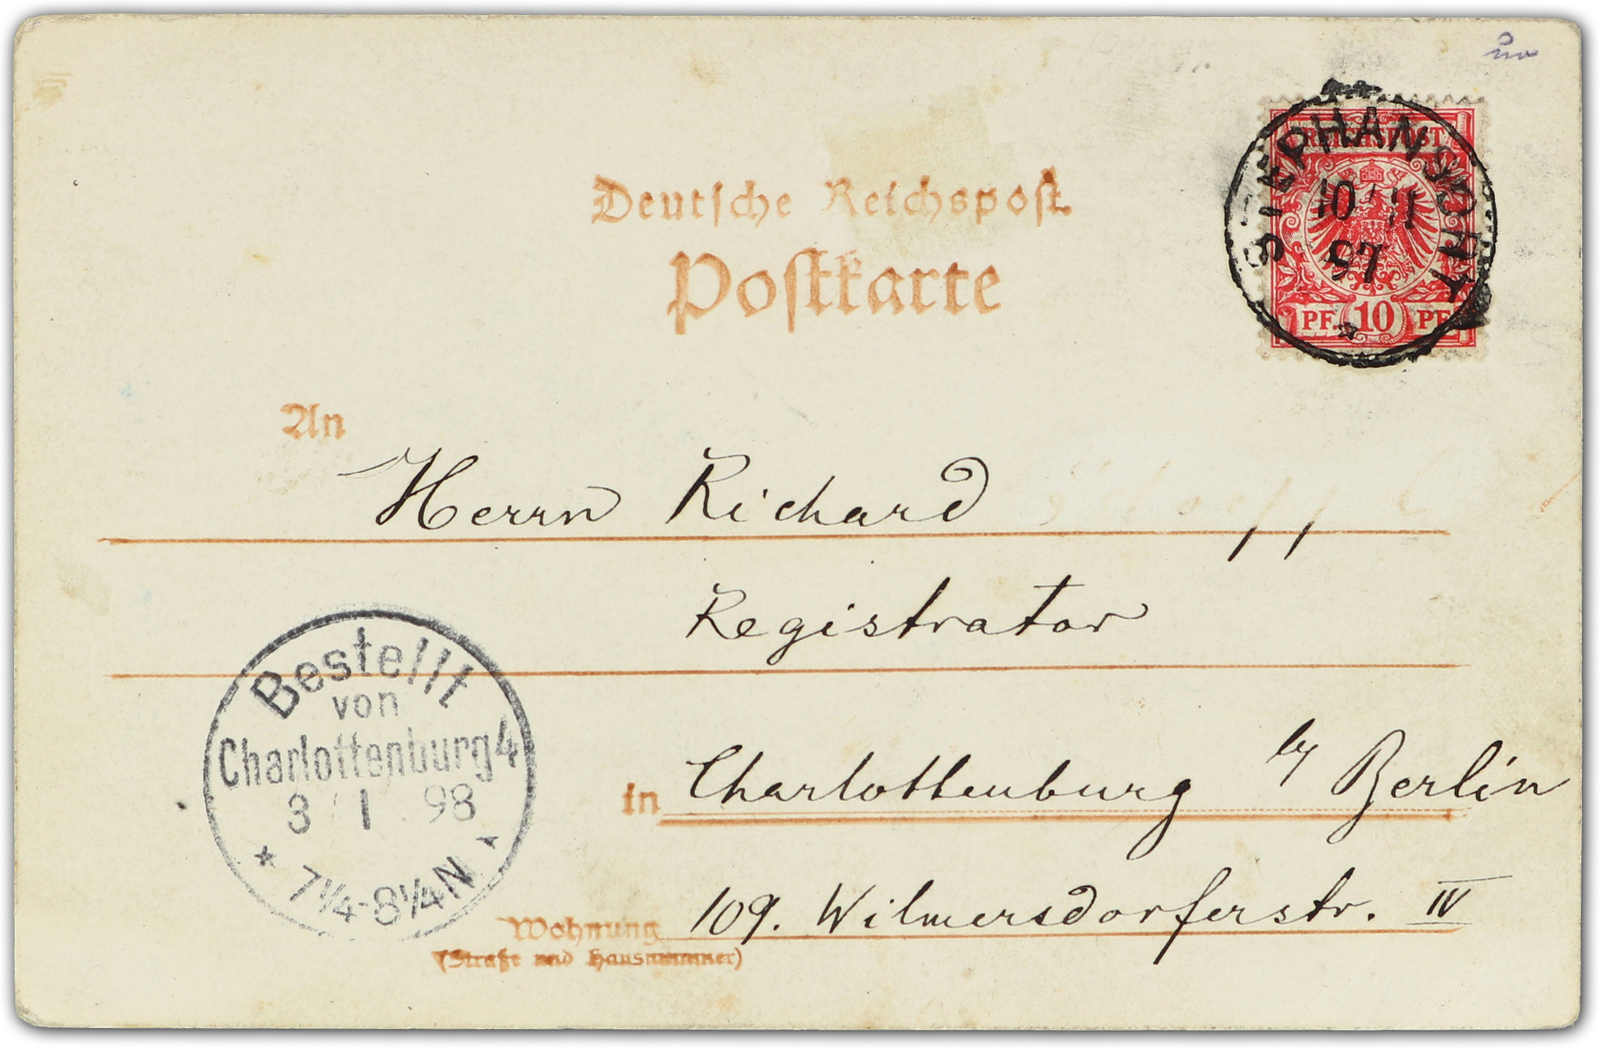 Deutsche Reichspost
Postkarte
STEPHANSORT
10 11
97
REICHSPOST
PF 10 PF
An
Herrn Richard
Registrator
in Charlottenburg b/ Berlin
Wohnung 109. Wilmersdorferstr. IV
(Straße und Hausnummer)
Bestellt
von
Charlottenburg 4
3 1 98
* 7¼-8¼N *